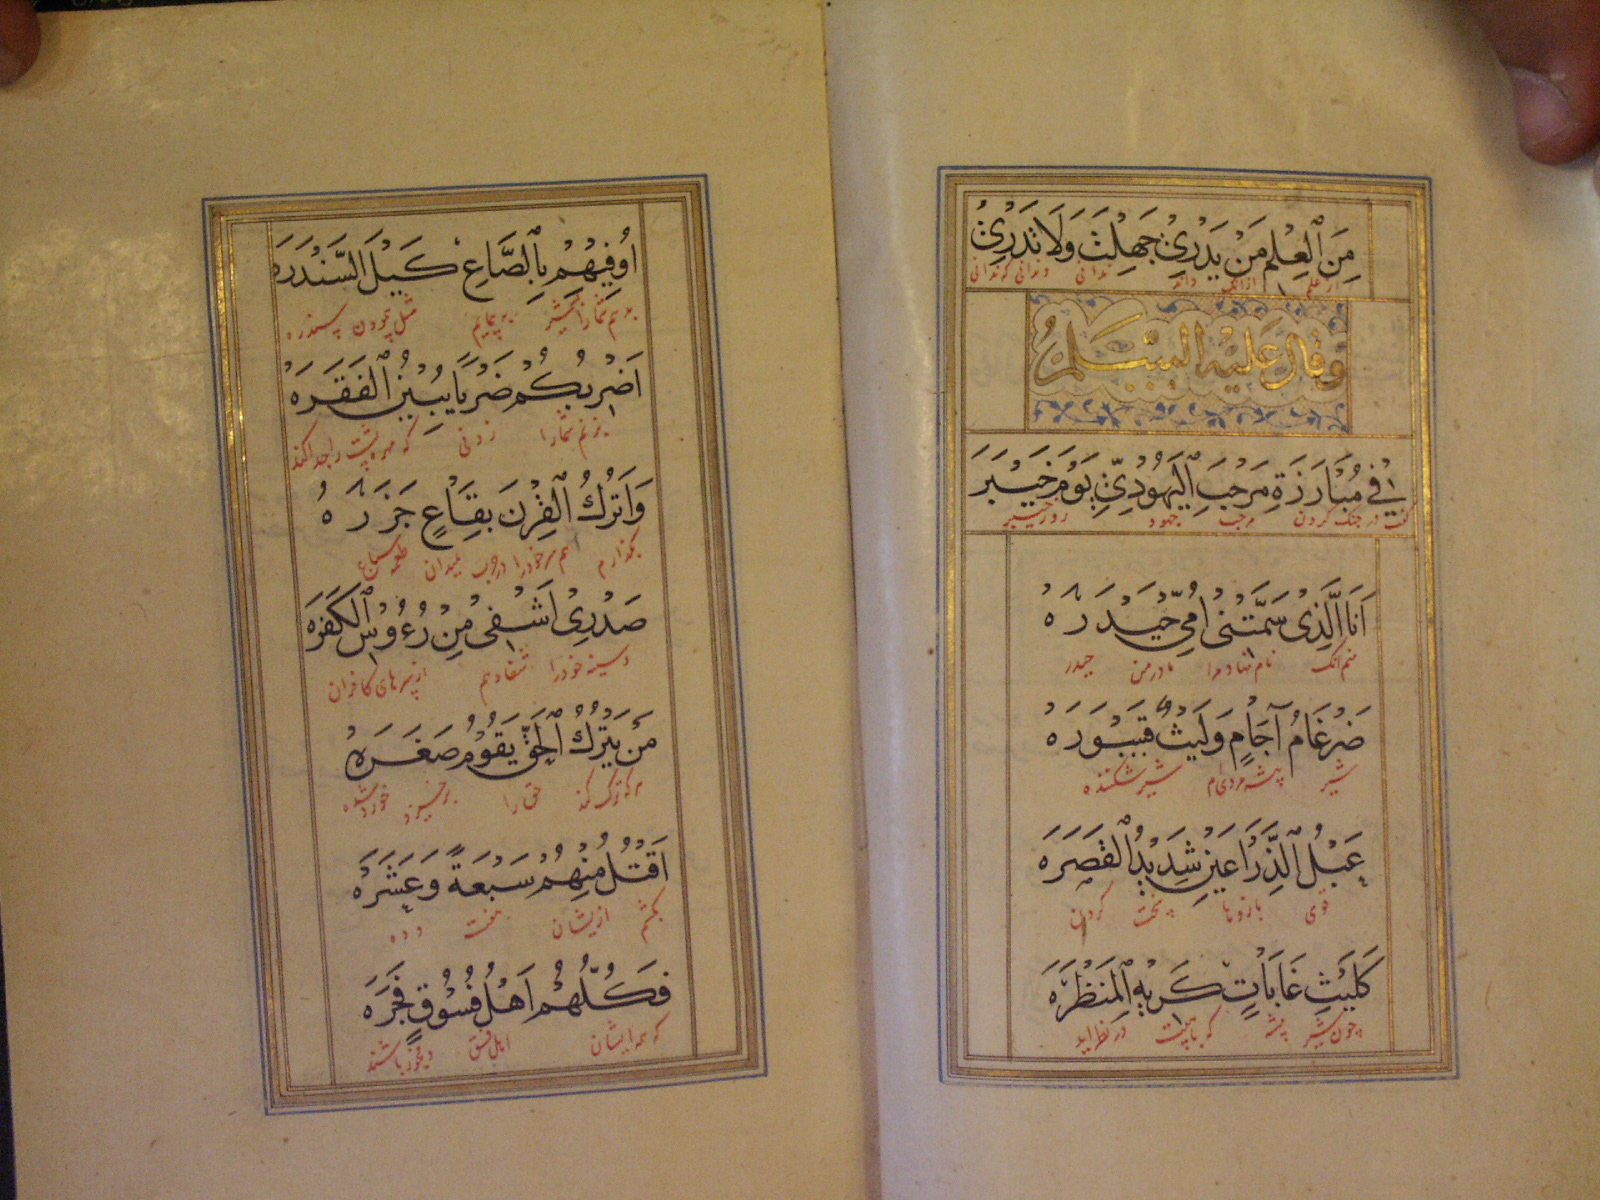 مِنَ ٱلْعِلْمِ مَنْ يَدْرِيْ جَهِلْتَ وَلَا تَدْرِيْ
از علم از آنکه داند ندانی و ندانی که ندانی
وقال عليه السلم
فِيْ مُبَارَزَةِ مَرْحَبِ ٱلْيَهُوْدِيِّ يَوْمَ خَيْبَرَ
گفت در جنگ کردن مرحب جهود روز خیبر
اَنَا الَّذِيْ سَمَّتْنِيْ اُمِّيْ حَيْدَرَهْ
منم آنک نام نهاد مرا مادر من حیدر
ضَرْغَامُ آجَامٍ وَلَيْثٌ قَسْوَرَهْ
شیر بیشه شیر شکننده
عَبْلُ ٱلذِّرَاعَيْنِ شَدِيْدُ ٱلْقَصَرَهْ
قوی بازوها سخت گردن
كَلَيْثِ غَابَاتٍ كَرِيْهِ ٱلْمَنْظَرَهْ
چون شیر بیشه در نظر آید
اُوْفِيْهِمْ بِٱلصَّاعِ كَيْلَ السَّنْدَرَهْ
مثل پیمودن سندره
اَضْرِبُكُمْ ضَرْبًا يُبِيْنُ ٱلْفَقَرَهْ
بزنم شما را زدنی که مهره پشت را جدا کند
وَاَتْرُكُ ٱلْقِرْنَ بِقَاعٍ جَزَرَهْ
بگذارم طعمه سباع
صَدْرِيْ اَشْفِيْ مِنْ رُءُوْسِ ٱلْكَفَرَهْ
سینه خود را شفا دهم از سرهای کافران
مَنْ يَتْرُكُ ٱلْحَقَّ يَقُوْمُ صَغَرَهْ
هر که ترک کند حق را برخیزد خورد شود
اَقْتُلُ مِنْهُمْ سَبْعَةً وَعَشَرَهْ
بکشم از ایشان هفت و ده
فَكُلُّهُمْ اَهْلُ فُسُوْقٍ فَجَرَهْ
که همه ایشان اهل فسق و فجور باشند